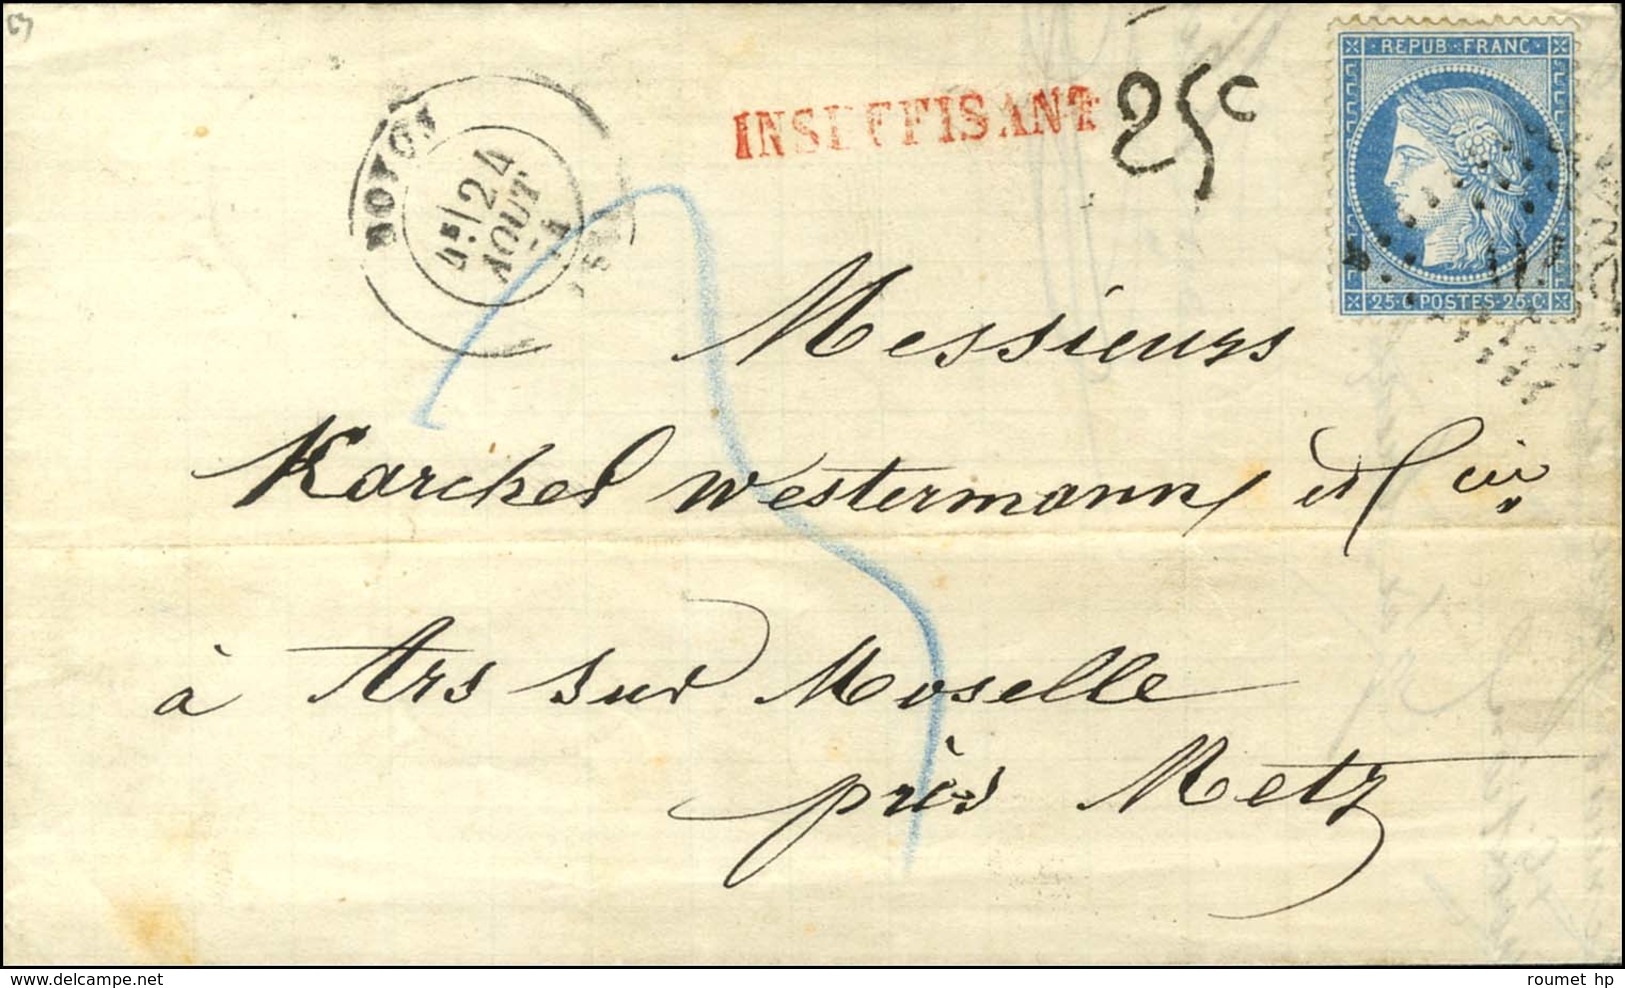 REPUB·FRANC
INSUFFISANT 25c
4E 24
AOUT
74
25·C·POSTES·25·C
Messieurs
Karcher Westermann et Cie
à Ars sur Moselle
près Metz
roumet hp